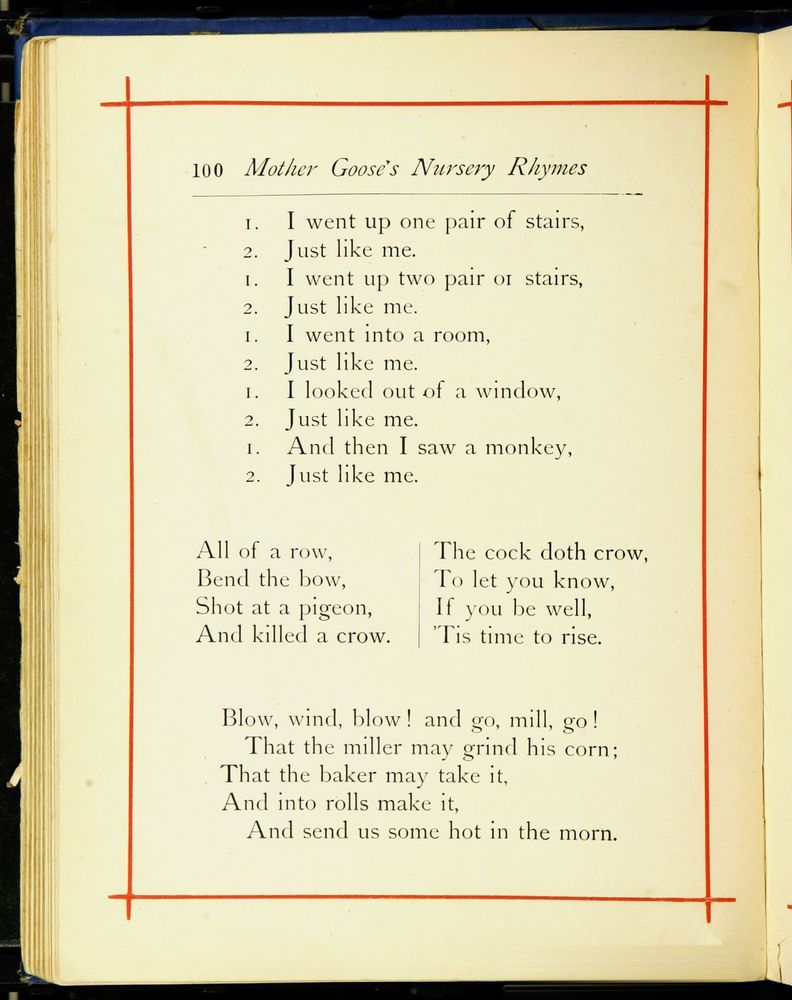 100 Mother Goose's Nursery Rhymes
1. I went up one pair of stairs,
2. Just like me.
1. I went up two pair of stairs,
2. Just like me.
1. I went into a room,
2. Just like me.
1. I looked out of a window,
2. Just like me.
1. And then I saw a monkey,
2. Just like me.
All of a row,
Bend the bow,
Shot at a pigeon,
And killed a crow.
The cock doth crow,
To let you know,
If you be well,
'Tis time to rise.
Blow, wind, blow! and go, mill, go!
That the miller may grind his corn;
That the baker may take it,
And into rolls make it,
And send us some hot in the morn.